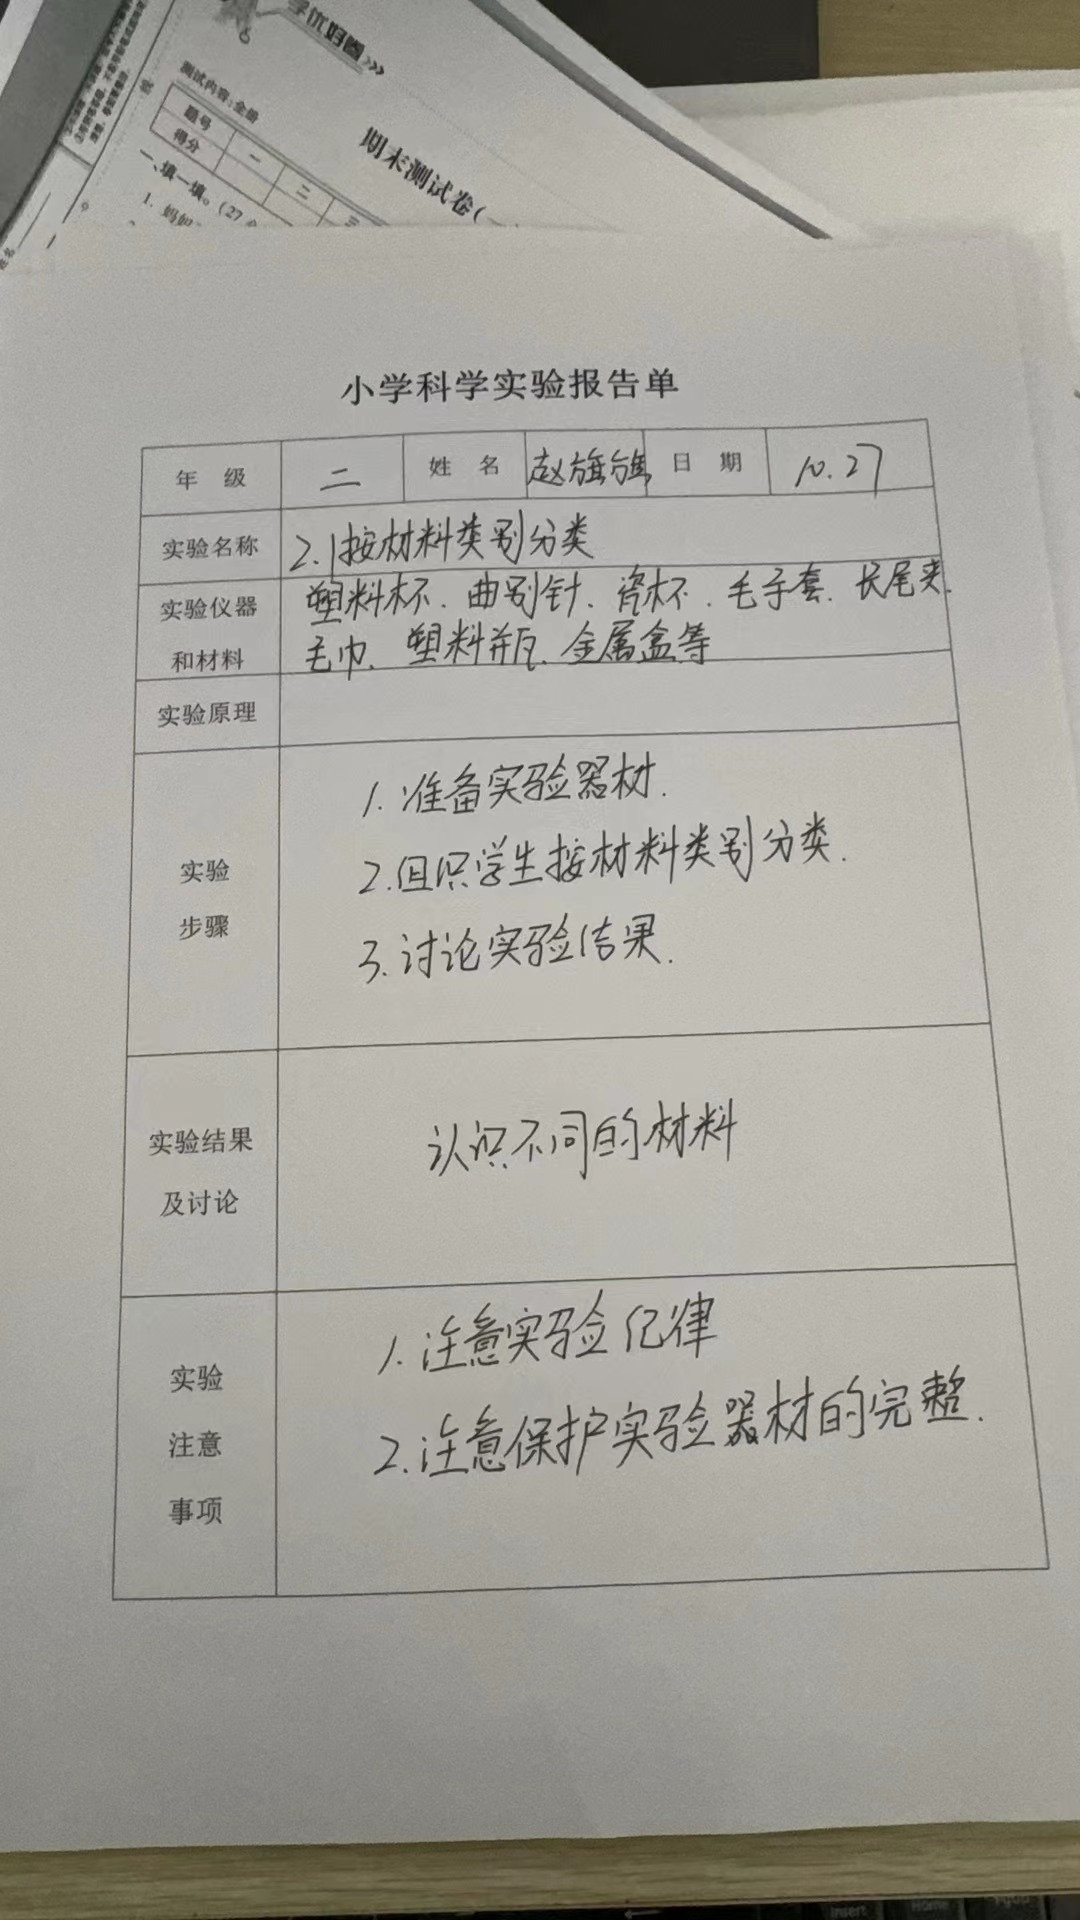 学优好卷
测试内容:全册
期末测试卷(一
题号 一 二 三
得分
一、填一填。(27
1. 妈妈
小学科学实验报告单
年 级 二 姓 名 赵旗旗 日 期 10.27
实验名称 2.1按材料类别分类
实验仪器 塑料杯、曲别针、瓷杯、毛手套、长尾夹、
和材料 毛巾、塑料瓶、金属盒等
实验原理
1.准备实验器材.
实验 2.组织学生按材料类别分类.
步骤 3.讨论实验结果.
实验结果 认识不同的材料
及讨论
1.注意实验纪律
实验 2.注意保护实验器材的完整.
注意
事项
Insert Home